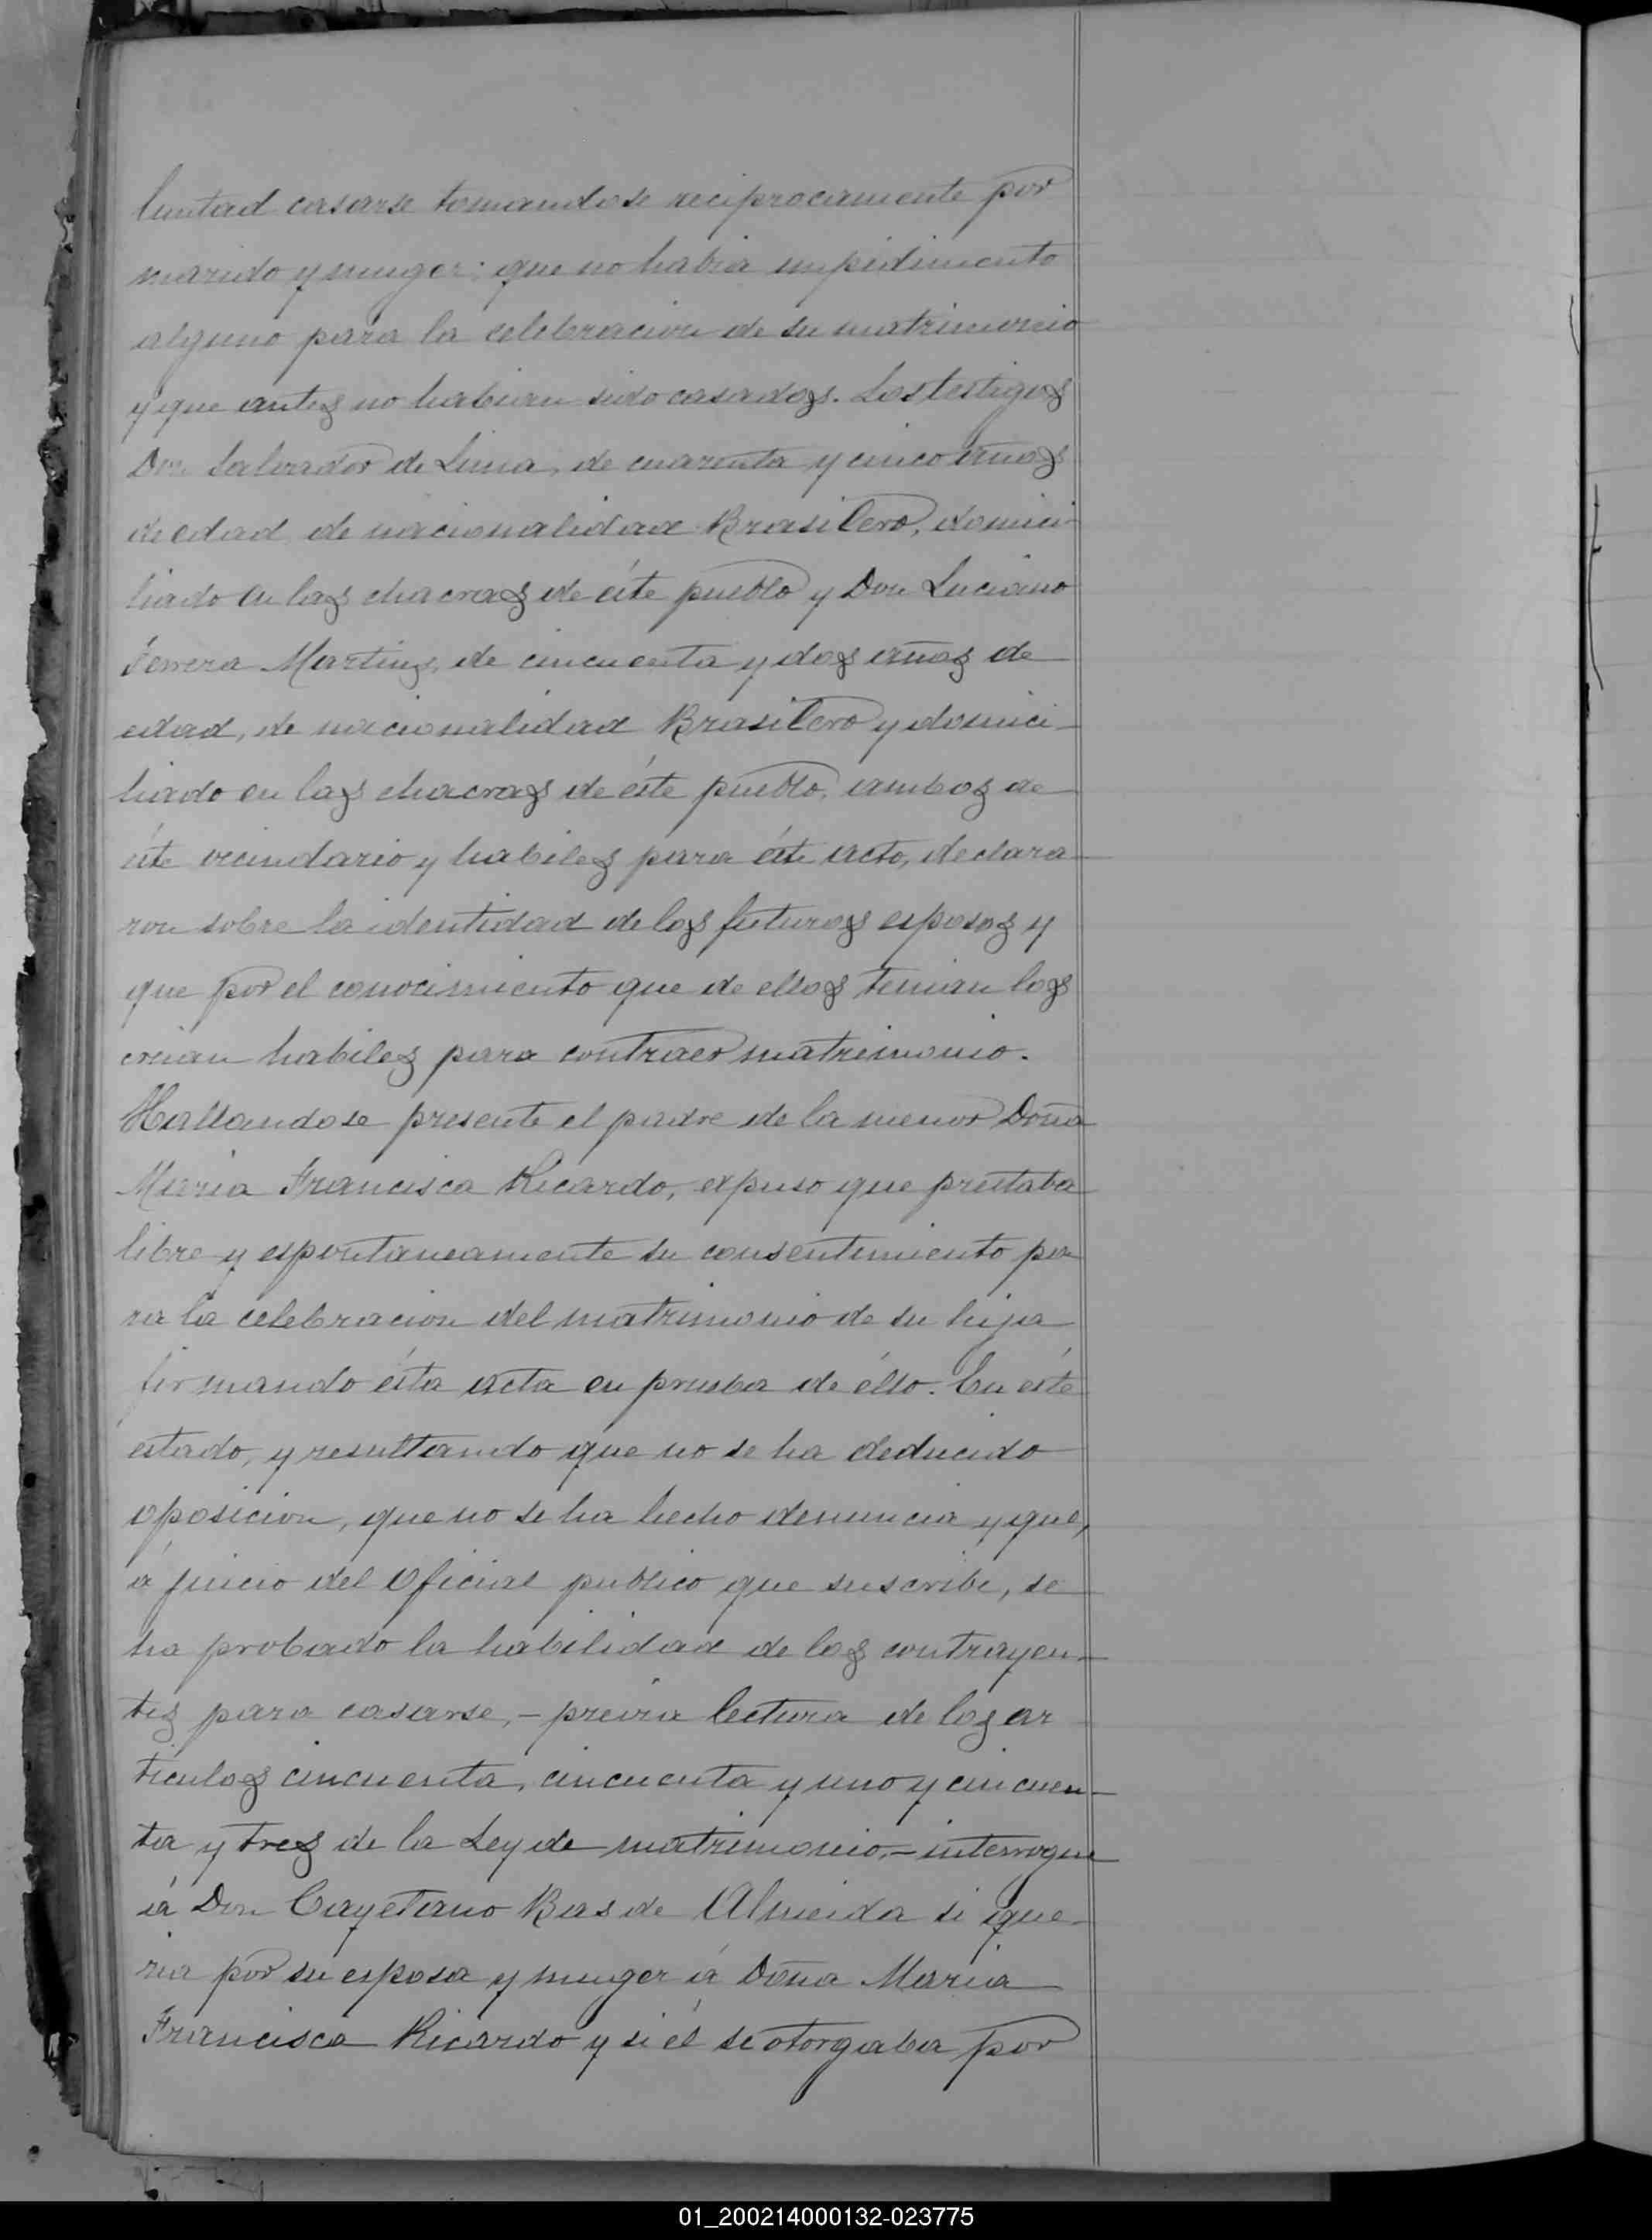 luntad casarse tomandose reciprocamente por
marido y muger: que no habia impedimento
alguno para la celebracion de su matrimonio
y que antes no habian sido casados. Los testigos
Don Salvador de Lima, de cuarenta y cinco años
de edad, de nacionalidad Brasilero, domici-
liado en las chacras de éste pueblo y Don Luciano
Ferrera Martins, de cincuenta y dos años de
edad, de nacionalidad Brasilero y domici-
liado en las chacras de éste pueblo, ambos de
éste vecindario y habiles para éste acto, declara-
ron sobre la identidad de los futuros esposos y
que por el conocimiento que de ellos tenian los
creian habiles para contraer matrimonio.
Hallandose presente el padre de la menor Doña
Maria Francisca Ricardo, expuso que prestaba
libre y espontaneamente su consentimiento pa
ra la celebracion del matrimonio de su hija
firmando ésta acta en prueba de éllo. En éste
estado, y resultando que no se ha deducido
oposicion, que no se ha hecho denuncia y que,
á juicio del Oficial publico que suscribe, se
ha probado la habilidad de los contrayen-
tes para casarse,- prévia lectura de los ar
ticulos cincuenta, cincuenta y uno y cincuen-
ta y tres de la Ley de matrimonio,- interrogue
á Don Cayetano Bas de Almeida si que-
ria por su esposa y muger á Doña Maria
Francisca Ricardo y si él se otorgaba por
01_200214000132-023775